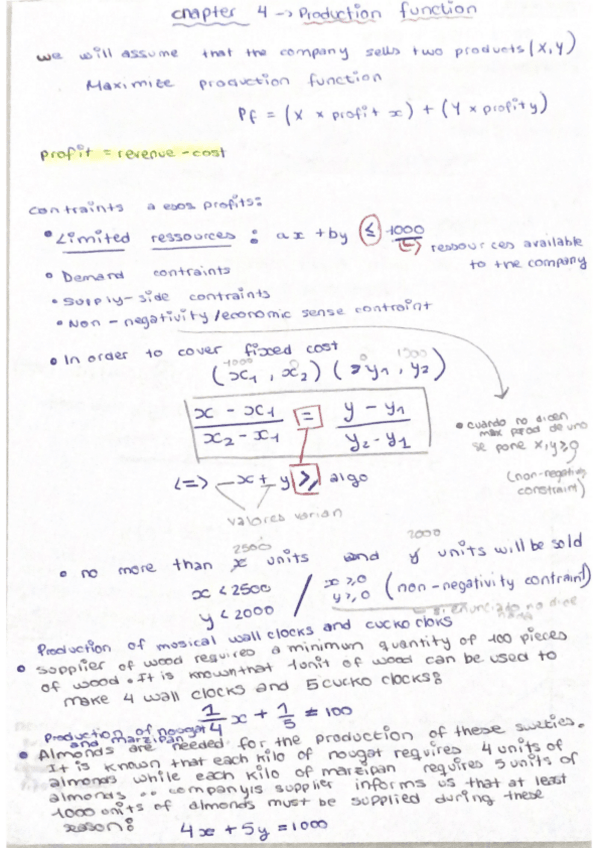 Chapter 4 → Production function
we will assume that the company sells two products (X,Y)
Maximize production function
Pf = (X × profit x) + (Y × profit y)
profit = revenue - cost
contraints a esos profits:
• Limited ressources : ax + by ≤ 1000
ressources available
to the company
• Demand contraints
• Supply-side contraints
• Non-negativity/economic sense contraint
• In order to cover fixed cost
1000 0 0 1500
(x1, x2) (y1, y2)
x - x1 / x2 - x1 = y - y1 / y2 - y1
• cuando no dicen
max prod de uno
se pone x,y≥0
(non-negative
constraint)
<=> -x + y ≥ algo
valores varian
2500 2000
• no more than x units and y units will be sold
x < 2500 / x ≥ 0
y < 2000 y ≥ 0 (non-negativity contraint)
enunciado no dice
Production of mosical wall clocks and cucko cloks
• Supplier of wood requires a minimun quantity of 100 pieces
of wood. It is known that 1 unit of wood can be used to
make 4 wall clocks and 5 cucko clocks:
1/4 x + 1/5 = 100
Production of nougat
and marzipan
• Almonds are needed for the production of these sweties.
It is known that each kilo of nougat requires 4 units of
almonds while each kilo of marzipan requires 5 units of
almonds .. company's supplier informs us that at least
1000 units of almonds must be supplied during these
season:
4x + 5y = 1000